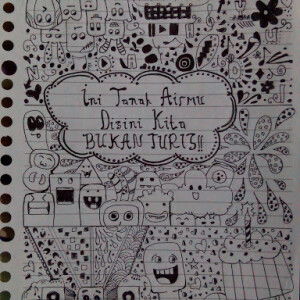 Ini Tanah Airmu
Disini Kita
BUKAN TURIS!!